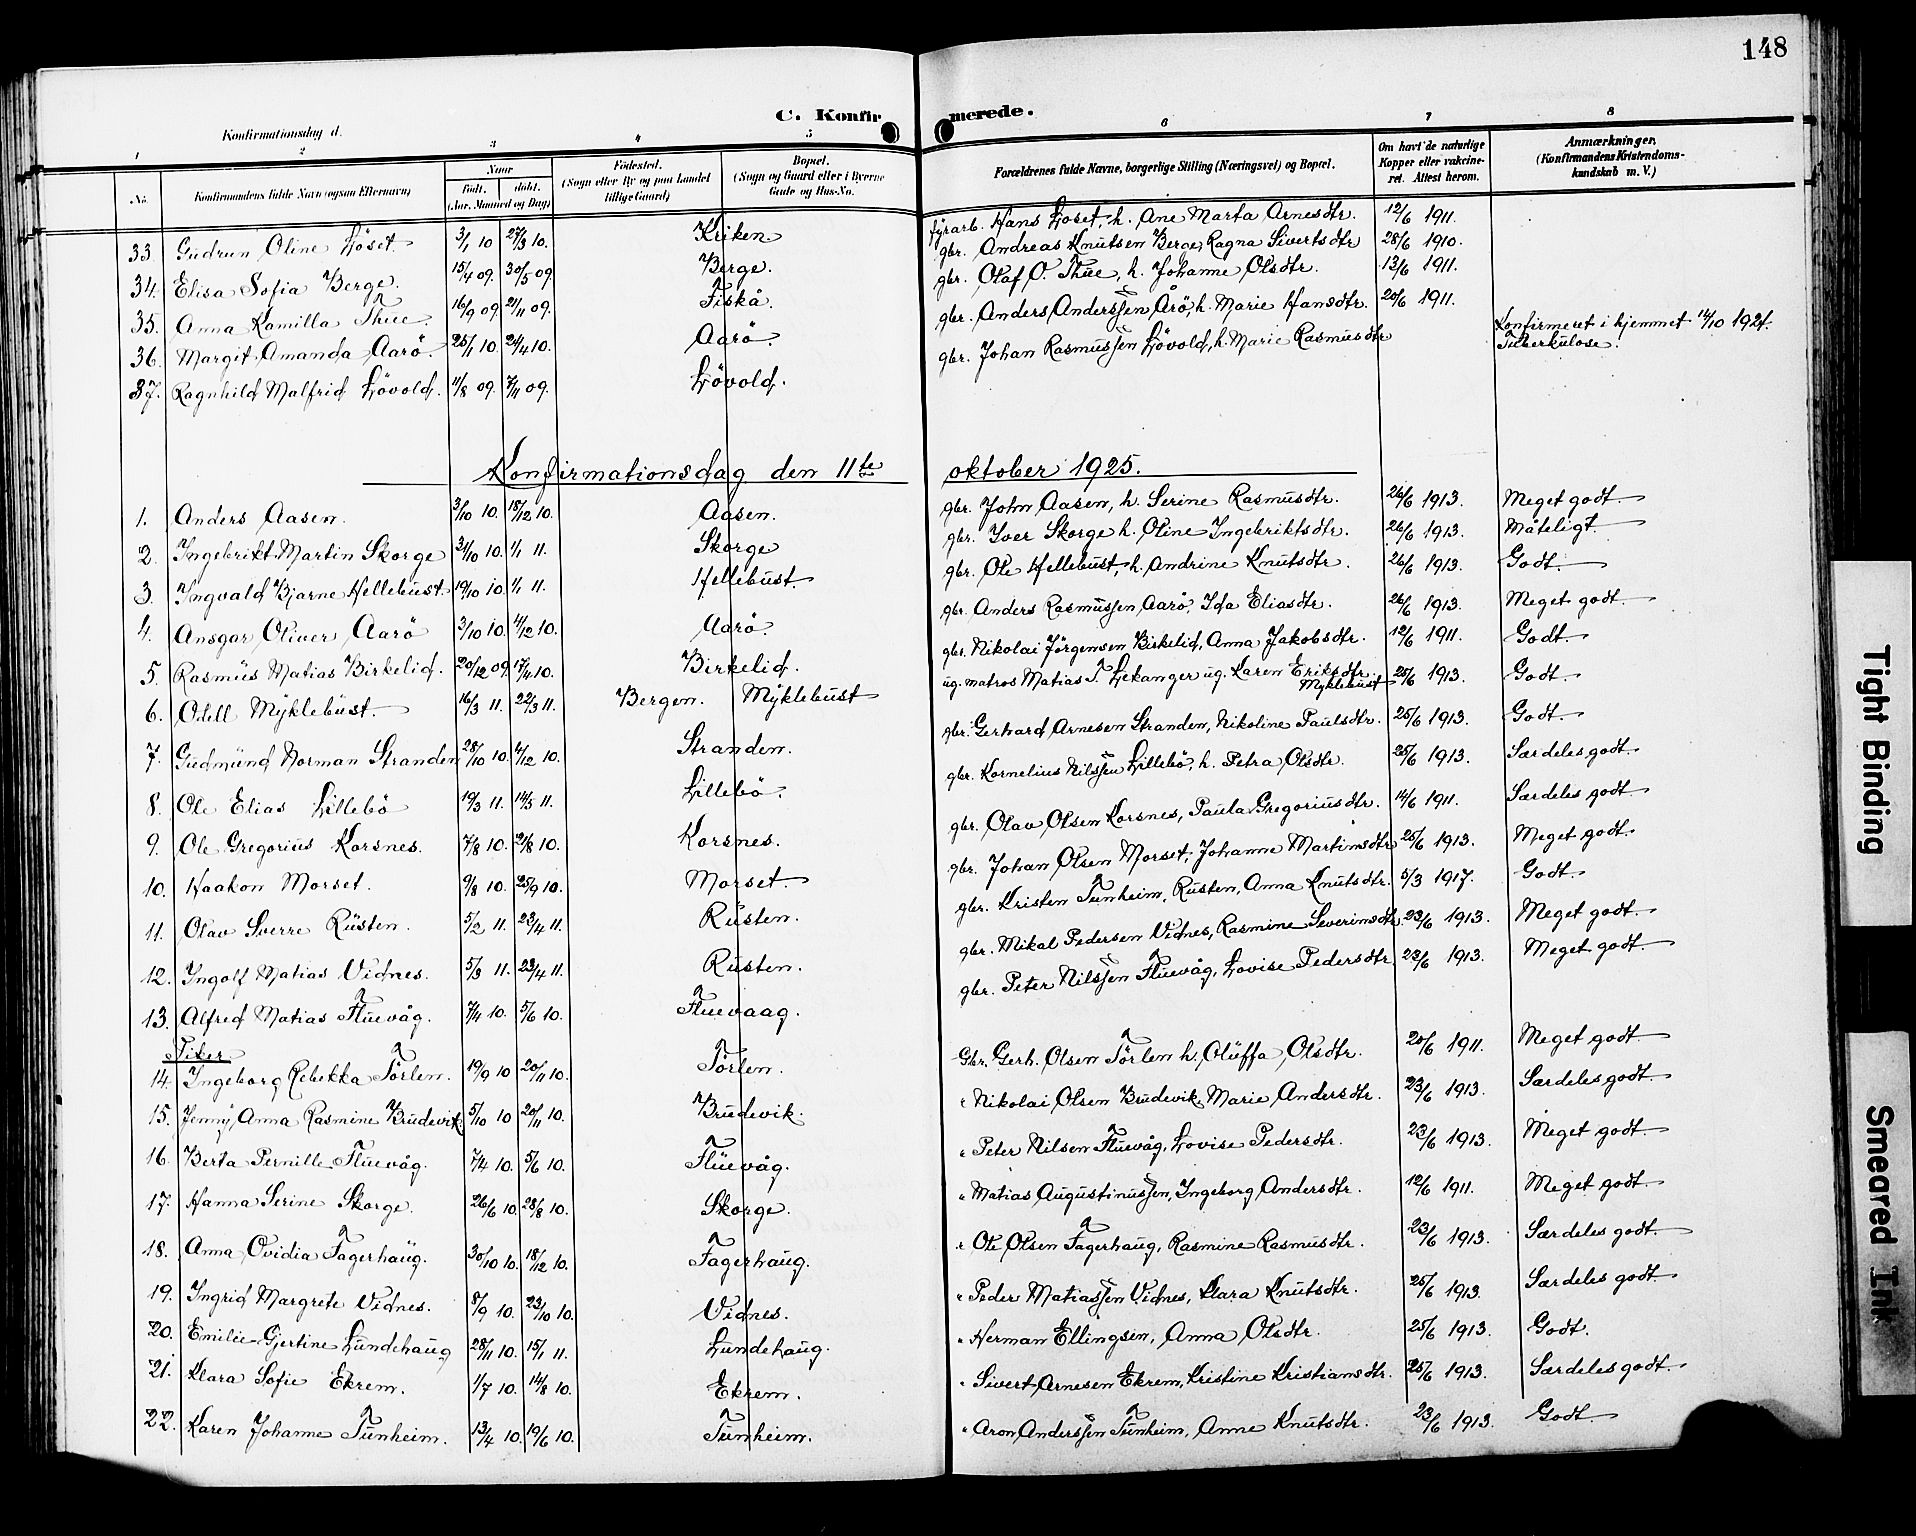 148
C. Konfirmerede.
Konfirmationsdag d.
1 2 3 4 5 6 7 8
No. Konfirmandens fulde Navn (ogsaa Efternavn) Naar født. døbt. (Aar, Maaned og Dag) Fødested. (Sogn eller By og paa Landet tillige Gaard) Bopæl. (Sogn og Gaard eller i Byerne Gade og Hus-No. Forældrenes fulde Navne, borgerlige Stilling (Næringsvei) og Bopæl. Om havt de naturlige Kopper eller vakcineret. Attest herom. Anmærkninger. (Konfirmandens Kristendomskundskab m. V.)
33. Gudrun Oline Löset 3/1 10 27/3 10. Kriken fyrarb. Hans Löset, h. Ane Marta Arnesdtr. 12/6 1911.
34. Elisa Sofia Berge. 15/4 09. 30/5 09 Berge. gbr. Andreas Knutsen Berge, Ragna Sivertsdtr 28/6 1910.
35. Anna Kamilla Thue. 16/9 09. 21/11 09. Fiskå. gbr. Olaf O. Thue, h. Johanne Olsdtr. 13/6 1911.
36. Margit Amanda Aarö. 25/1 10. 24/4 10. Aarö gbr. Anders Anderssen Årö, h. Marie Hansdtr. 20/6 1911.
37. Ragnhild Malfrid Lövold. 11/8 09. 7/11 09. Lövold. gbr. Johan Rasmussen Lövold, h. Marie Rasmusdtr Konfirmeret i hjemmet 14/10 1924. Tuberkulose.
Konfirmationsdag den 11te oktober 1925.
1. Anders Aasen. 3/10 10. 18/12 10. Aasen. gbr. John Aasen, h. Serine Rasmusdtr. 26/6 1913. Meget godt.
2. Ingebrikt Martin Skorge 31/10 10. 1/1 11. Skorge gbr. Iver Skorge h. Oline Ingebriktsdtr. 26/6 1913. Måteligt.
3. Ingvald Bjarne Hellebust. 19/10 10. 1/1 11. Hellebust. gbr. Ole Hellebust, h. Andrine Knutsdtr. 26/6 1913. Godt.
4. Ansgar Oliver Aarö 3/10 10. 4/12 10. Aarö. gbr. Anders Rasmussen Aarö, Ida Eliasdtr. 26/6 1913. Meget godt.
5. Rasmus Matias Birkelid. 20/12 09. 17/4 10. Birkelid. gbr. Nikolai Jörgensen Birkelid, Anna Jakobsdtr. 12/6 1911. Godt
6. Odell Myklebust. 16/3 11. 22/3 11. Bergen. Myklebust ug. matros Matias T. Lekanger ug. Karen Eriksdtr. Myklebust 25/6 1913. Godt.
7. Gudmund Norman Stranden 28/10 10. 4/12 10. Stranden. gbr. Gerhard Arnesen Stranden, Nikoline Paulsdtr. 25/6 1913. Godt.
8. Ole Elias Lillebö 19/3 11. 14/5 11. Lillebö. gbr. Kornelius Nilssen Lillebö, h. Petra Olsdtr. 25/6 1913. Særdeles godt.
9. Ole Gregorius Korsnes. 7/8 10. 21/8 10. Korsnes. gbr. Olav Olsen Korsnes, Paula Gregoriusdtr. 14/6 1911. Særdeles godt.
10. Haakon Morset. 9/8 10. 25/9 10. Morset. gbr. Johan Olsen Morset, Johanne Martinsdtr 25/6 1913. Meget godt.
11. Olav Sverre Rusten. 5/2 11. 23/4 11. Rusten. gbr. Kristen Tunheim, Rusten, Anna Knutsdtr. 5/3 1917. Godt.
12. Ingolf Matias Vidnes. 5/3 11. 23/4 11. Rusten. gbr. Mikal Pedersen Vidnes, Rasmine Severinsdtr. 23/6 1913. Meget godt.
13. Alfred Matias Fluevåg. 7/4 10. 5/6 10. Fluevaag. gbr. Peter Nilssen Fluevåg, Lovise Pedersdtr. 23/6 1913. Meget godt.
Piker
14. Ingeborg Rebekka Törlen. 19/9 10 20/11 10. Törlen. Gbr. Gerh. Olsen Törlen h. Oluffa Olsdtr. 20/6 1911. Meget godt.
15. Jenny Anna Rasmine Brudevik 5/10 10 20/11 10. Brudevik. " Nikolai Olsen Brudevik, Marie Andersdtr. 23/6 1913. Særdeles godt.
16. Berta Pernille Fluevåg. 7/4 10. 5/6 10. Fluevåg. " Peter Nilsen Fluevåg, Lovise Pedersdtr. 23/6 1913. Meget godt.
17. Hanna Serine Skorge. 26/6 10. 28/8 10. Skorge. " Matias Augustinussen, Ingeborg Andersdtr. 12/6 1911. Meget godt.
18. Anna Ovidia Fagerhaug. 30/10 10. 18/12 10. Fagerhaug. " Ole Olsen Fagerhaug, Rasmine Rasmusdtr. 23/6 1913. Særdeles godt.
19. Ingrid Margrete Vidnes. 8/9 10. 23/10 10. Vidnes. " Peder Matiassen Vidnes, Klara Knutsdtr. 25/6 1913. Særdeles godt.
20. Emilie Gjertine Lundehaug 28/11 10. 15/1 11. Lundehaug. " Herman Ellingsen, Anna Olsdtr. 25/6 1913. Godt.
21. Klara Sofie Ekrem. 1/7 10. 14/8 10. Ekrem. " Sivert Arnesen Ekrem, Kristine Kristiansdtr. 25/6 1913. Særdeles godt.
22. Karen Johanne Tunheim. 13/4 10. 19/6 10. Tunheim. " Aron Anderssen Tunheim, Anne Knutsdtr. 23/6 1913. Godt.
Tight Binding
Smeared Ink